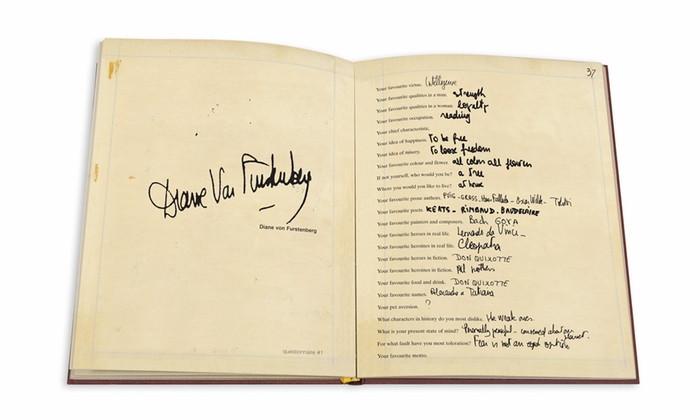 Diane Von Furstenberg
Diane von Furstenberg
questionnaire #1
37
Your favourite virtue. Intelligence
Your favourite qualities in a man. strength
Your favourite qualities in a woman. loyalty
Your favourite occupation. reading
Your chief characteristic.
Your idea of happiness. To be free
Your idea of misery. To loose freedom
Your favourite colour and flower. all colors all flowers
If not yourself, who would you be? a tree
Where you would you like to live? at home
Your favourite prose authors. GRASS Oscar Wilde - Tolstoi
Your favourite poets. KEATS - RIMBAUD - BAUDELAIRE
Your favourite painters and composers. Bach GOYA
Your favourite heroes in real life. Leonardo da Vinci
Your favourite heroines in real life. Cleopatra
Your favourite heroes in fiction. DON QUIXOTTE
Your favourite heroines in fiction.
Your favourite food and drink. DON QUIXOTTE
Your favourite names. Alexandre & Tatiana
Your pet aversion. ?
What characters in history do you most dislike. The weak ones
What is your present state of mind? peaceful - concerned about our planet.
For what fault have you most toleration? Fear is not an option
Your favourite motto.